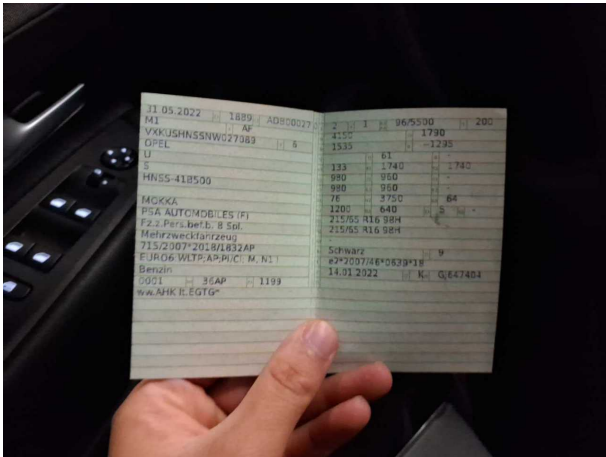 31.05.2022 1889 ADB00027
M1 AF
VXKUSHNSSNW027089 6
OPEL
U
S
HNSS-418500
MOKKA
PSA AUTOMOBILES (F)
Fz.z.Pers.bef.b. 8 Spl.
Mehrzweckfahrzeug
715/2007*2018/1832AP
EURO6 WLTP;AP;PI/CI; M, N1 I
Benzin
0001 36AP 1199
ww.AHK lt.EGTG*
2 1 96/5500 200
4150 1790
1535 -1295
61 -
133 1740 1740
980 960 -
980 960 -
76 3750 64
1200 640 5 -
215/65 R16 98H
215/65 R16 98H
-
Schwarz 9
e2*2007/46*0639*18
14.01.2022 K GJ647404